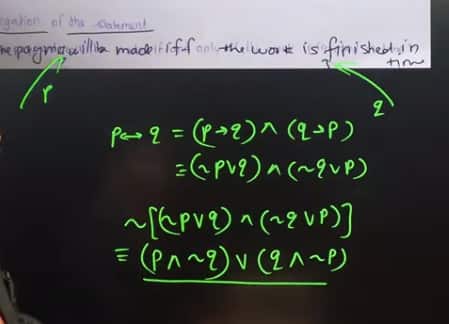 negation of the statement
payment will be made iff the work is finished in
time
p
q
p↔q = (p→q) ∧ (q→p)
= (~p∨q) ∧ (~q∨p)
~[(~p∨q) ∧ (~q∨p)]
≡ (p∧~q) ∨ (q∧~p)